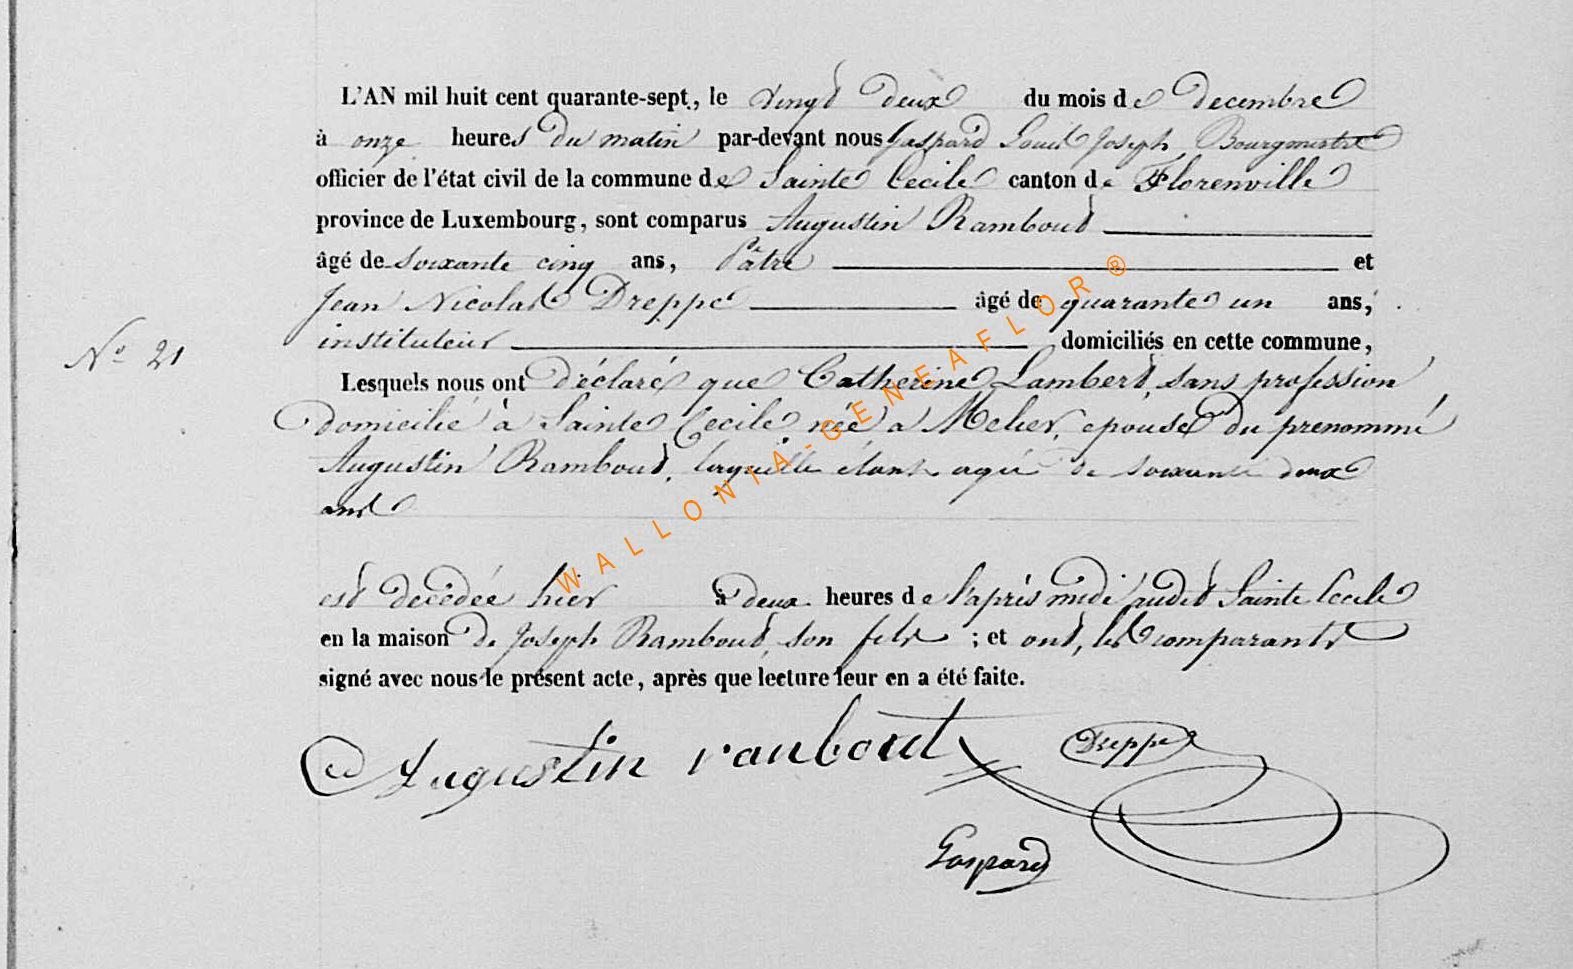 L'AN mil huit cent quarante-sept, le vingt deux du mois de decembre
à onze heures du matin par-devant nous Gaspard Louis Joseph Bourgmestre
officier de l'état civil de la commune de Sainte Cecile canton de Florenville
province de Luxembourg, sont comparus Augustin Rambout
âgé de soixante cinq ans, Pâtre et
Jean Nicolas Dreppe âgé de quarante un ans,
instituteur domiciliés en cette commune,
N° 21
Lesquels nous ont déclaré que Catherine Lambert, sans profession,
domicilié à Sainte Cecile née a Melier, epouse du prenommé
Augustin Rambout, laquelle étant agée de soixante deux
ans
est decédée hier à deux heures de l'après midi audit Sainte Cecile
en la maison de Joseph Rambout, son fils ; et ont, les comparants
signé avec nous le présent acte, après que lecture leur en a été faite.
Augustin ranbout Dreppe
Gaspard
WALLONIA-GENEAFLOR ®